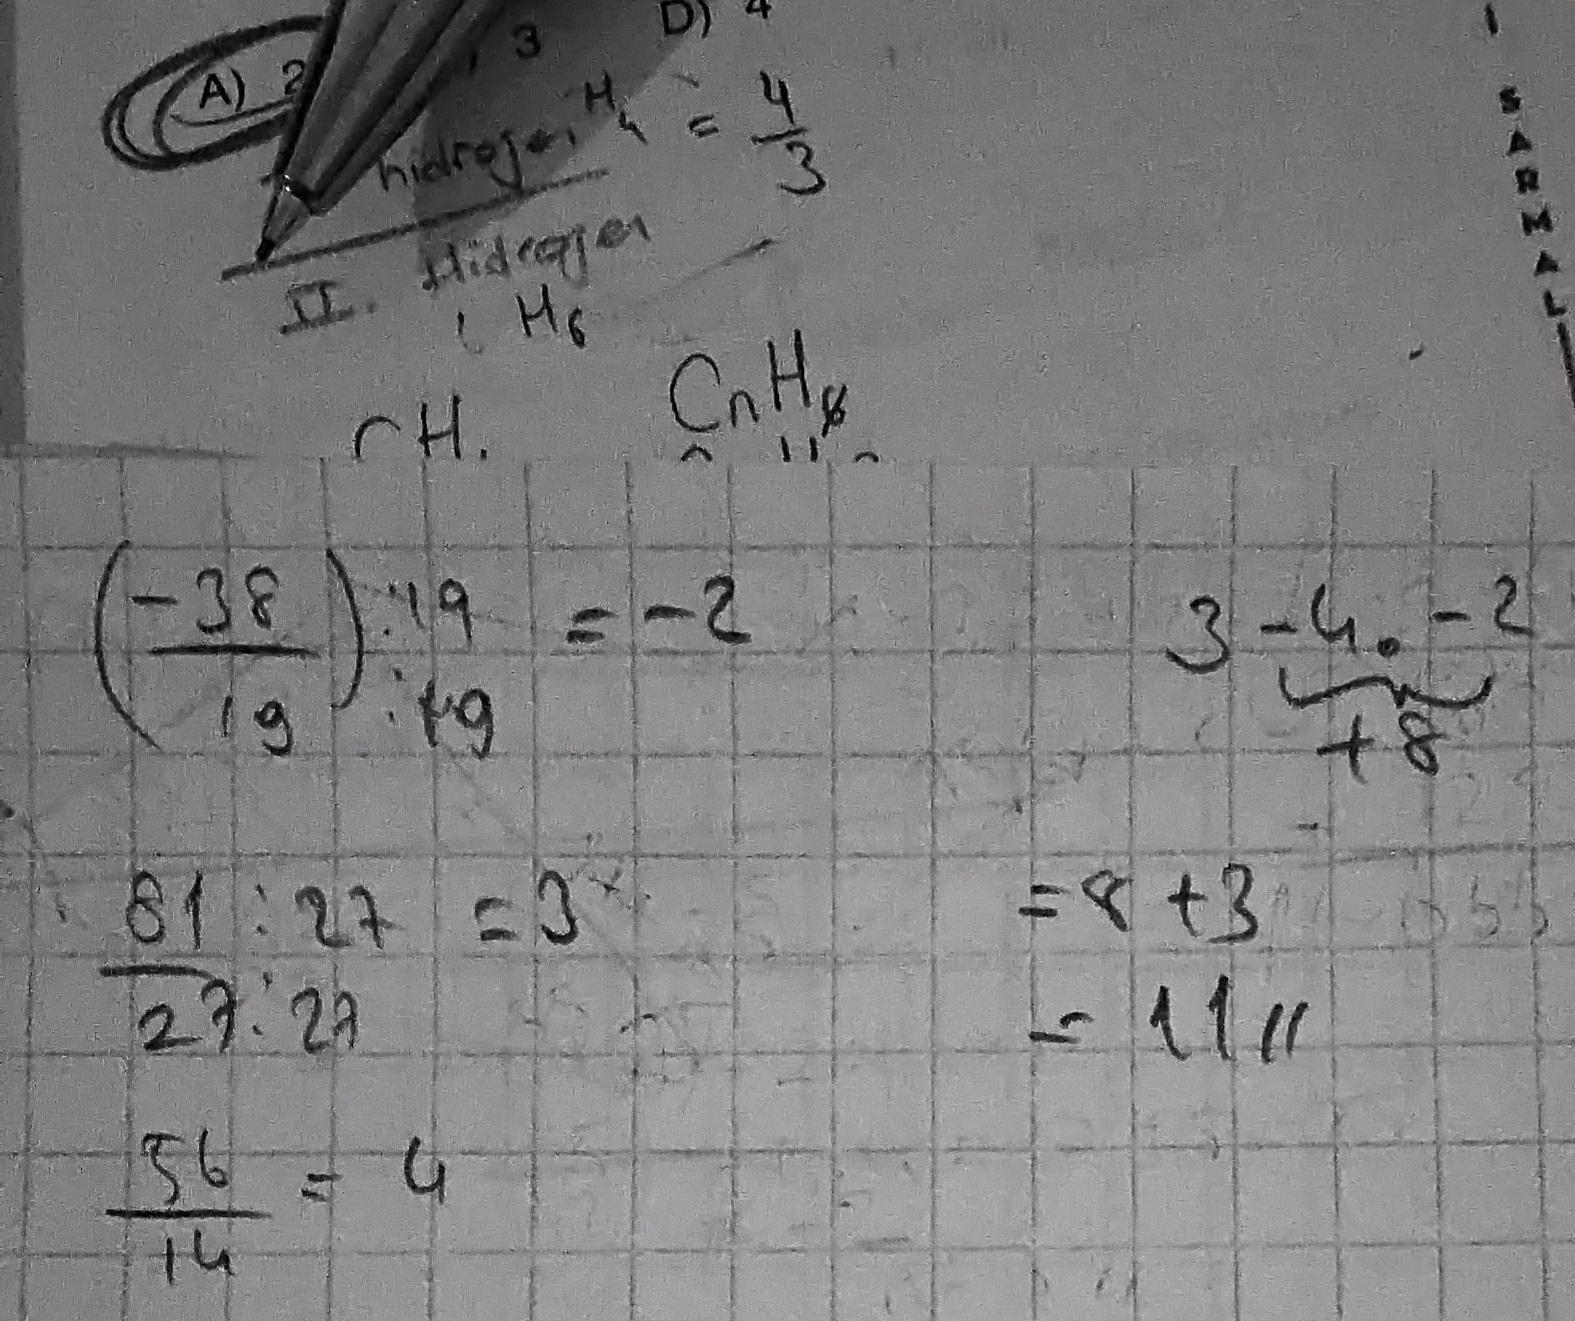 D) 4
A) 2 3
hidrojen H4 = 4/3
II. Hidrojen
H6
CnH8
H.
SARMAL
(-38/19) :19 :19 = -2
3 - 4. - 2
+8
81:27 / 27:27 = 3
= 8 + 3
= 11 //
56/14 = 4